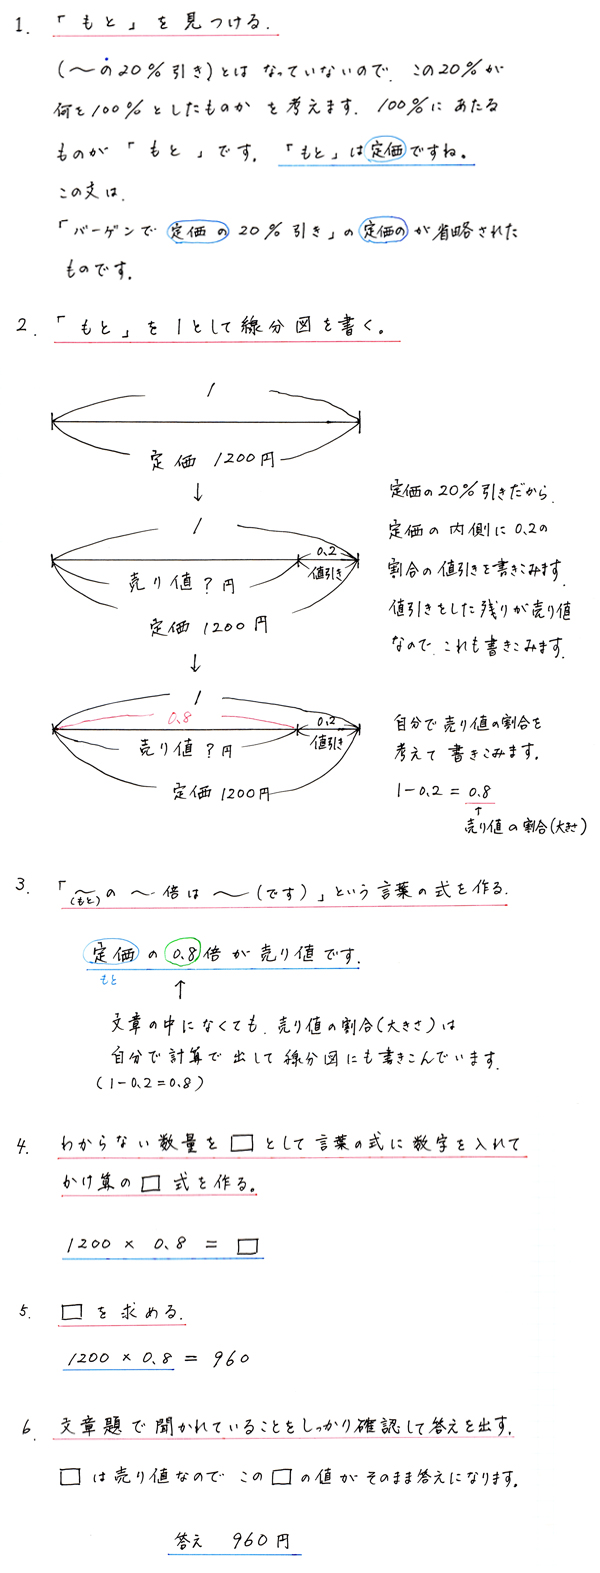 1. 「もと」を見つける.
(〜の20%引き)とはなっていないので、この20%が
何を100%としたものかを考えます. 100%にあたる
ものが「もと」です. 「もと」は定価ですね。
この文は、
「バーゲンで定価の20%引き」の定価のが省略された
ものです.
2. 「もと」を1として線分図を書く。
1
定価 1200円
↓
1
0.2
売り値?円
値引き
定価 1200円
↓
1
0.8
0.2
売り値?円
値引き
定価 1200円
定価の20%引きだから、
定価の内側に0.2の
割合の値引きを書きこみます.
値引きをした残りが売り値
なので、これも書きこみます.
自分で売り値の割合を
考えて書きこみます.
1-0.2=0.8
↑
売り値の割合(大きさ)
3. 「〜の 〜 倍は 〜 (です)」という言葉の式を作る.
(もと)
定価の0.8倍が売り値です.
もと
↑
文章の中になくても、売り値の割合(大きさ)は
自分で計算で出して線分図にも書きこんでいます.
(1-0.2=0.8)
4. わからない数量を□として言葉の式に数字を入れて
かけ算の□式を作る。
1200 × 0.8 = □
5. □を求める.
1200 × 0.8 = 960
6. 文章題で聞かれていることをしっかり確認して答えを出す.
□は売り値なのでこの□の値がそのまま答えになります.
答え 960円